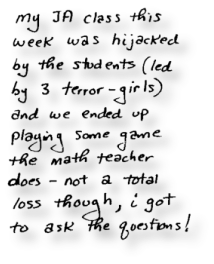 my JA class this
week was hijacked
by the students (led
by 3 terror-girls)
and we ended up
playing some game
the math teacher
does - not a total
loss though, i got
to ask the questions!